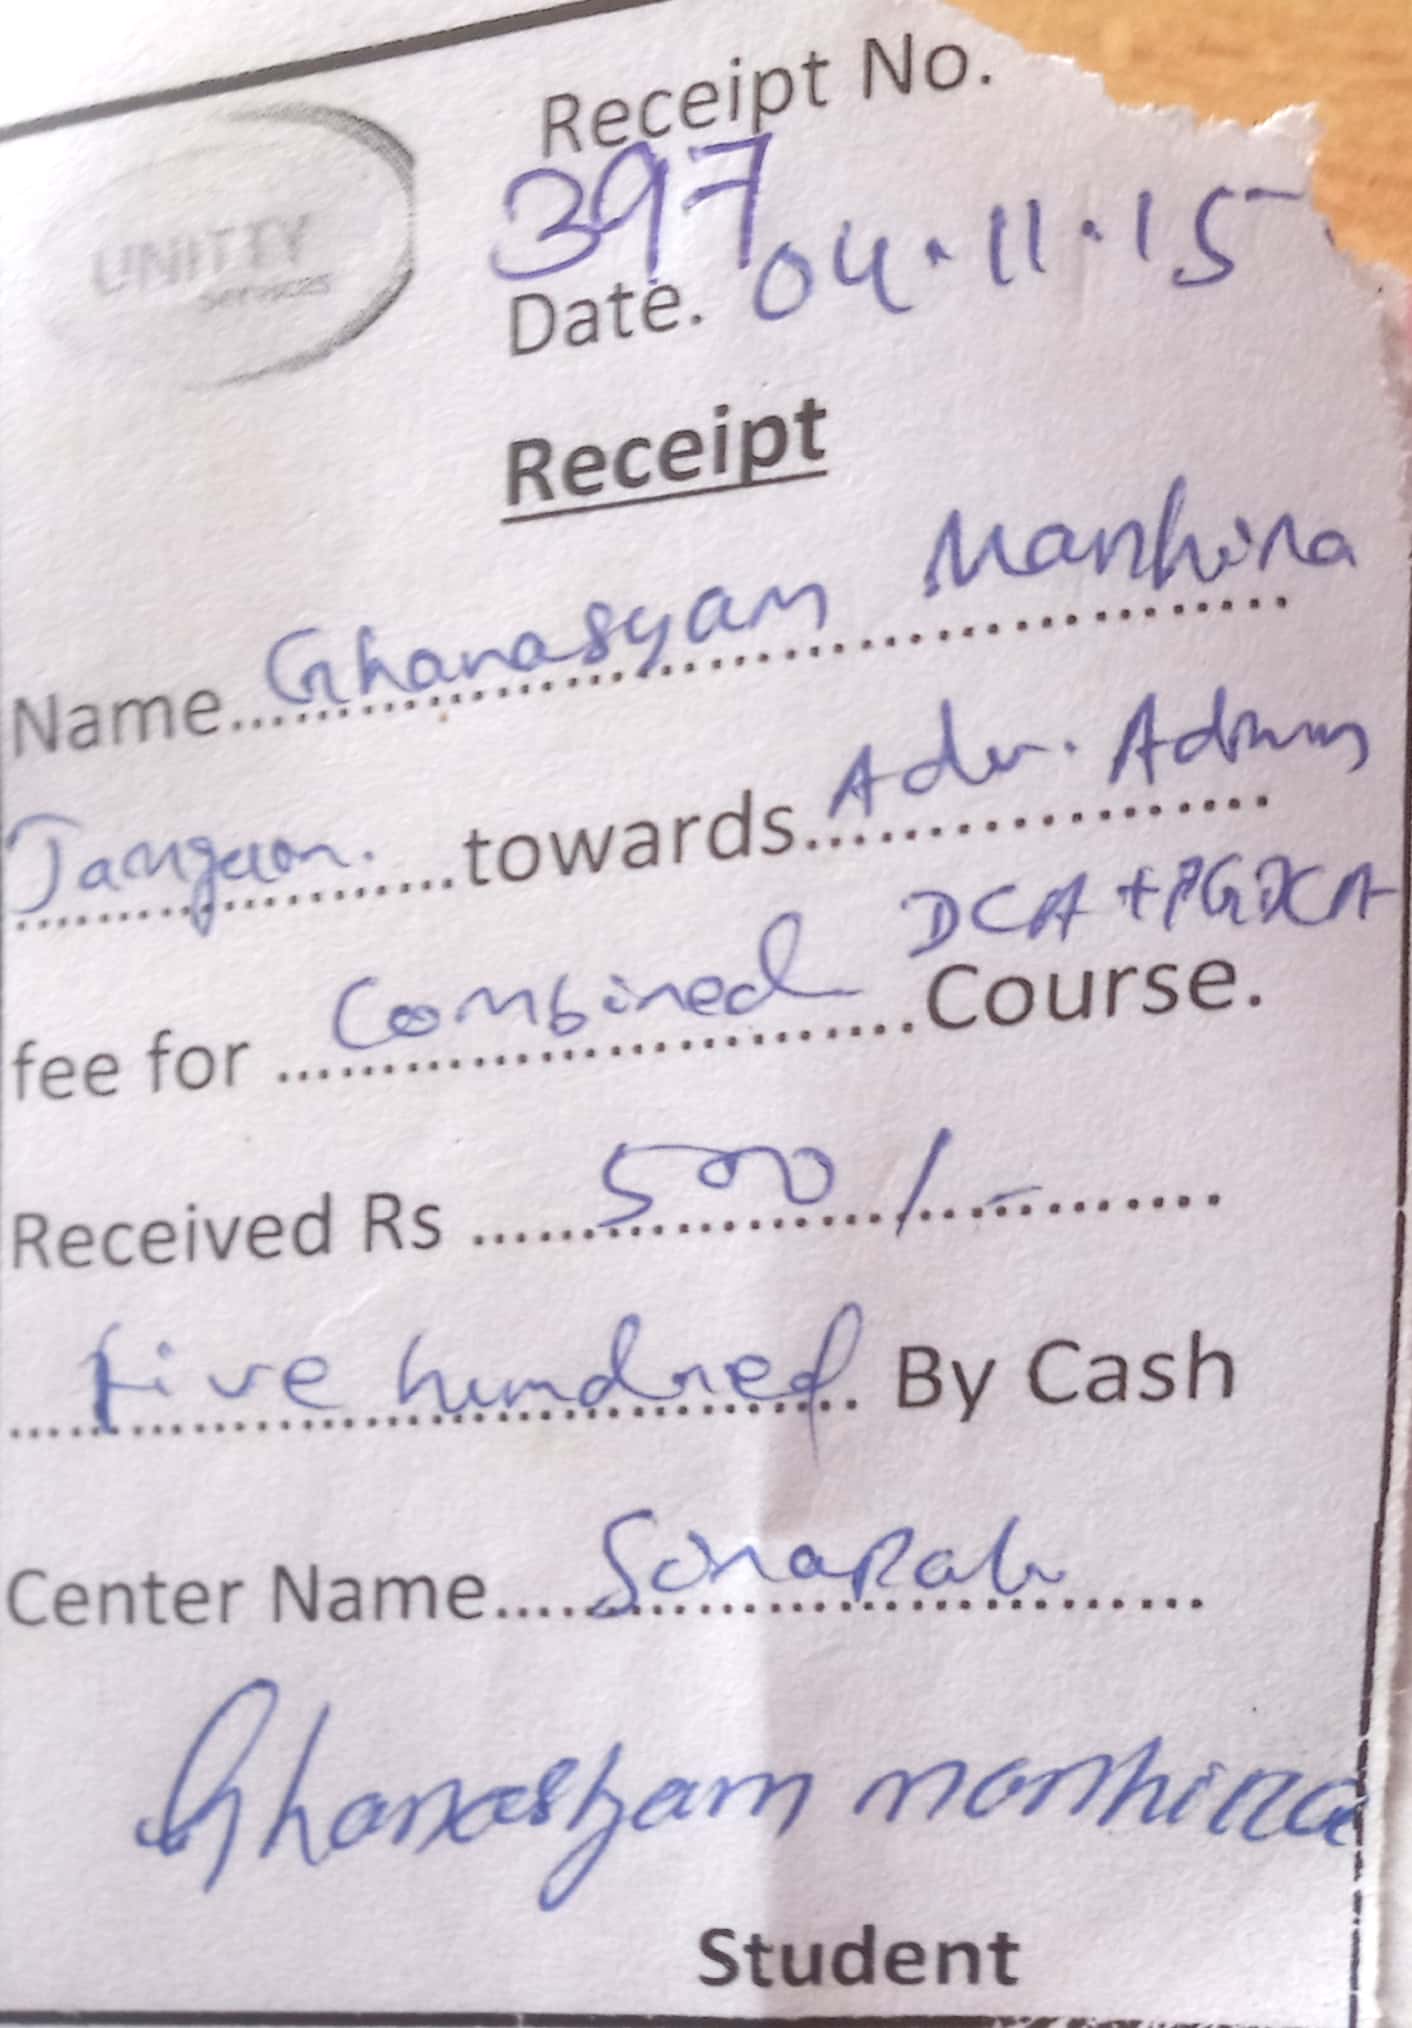 UNITTY
services
Receipt No.
397
Date. 04.11.15
Receipt
Name Ghanasyam Manhira
Jamgaon. towards Adv. Admn
DCA + PGDCA
fee for Combined Course.
Received Rs 500/-
five hundred By Cash
Center Name
Ghanashyam manhira
Student